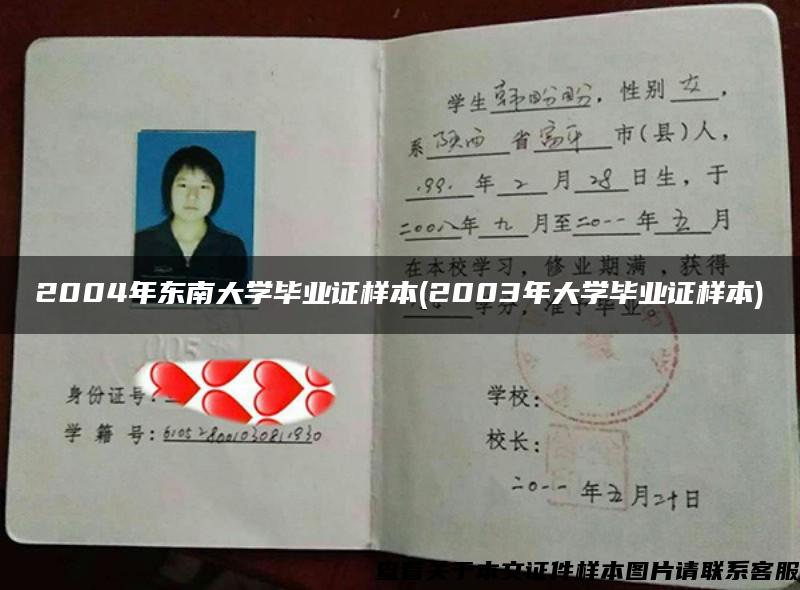 学生韩盼盼，性别女，
系陕西省富平市(县)人，
1991年2月28日生，于
二00八年九月至二0一一年五月
在本校学习，修业期满，获得
学分，准予毕业。
2004年东南大学毕业证样本(2003年大学毕业证样本)
005
身份证号：
学籍号：610528001030811930
学校：
校长：
二0一一年五月二十日
查看关于本文证件样本图片请联系客服